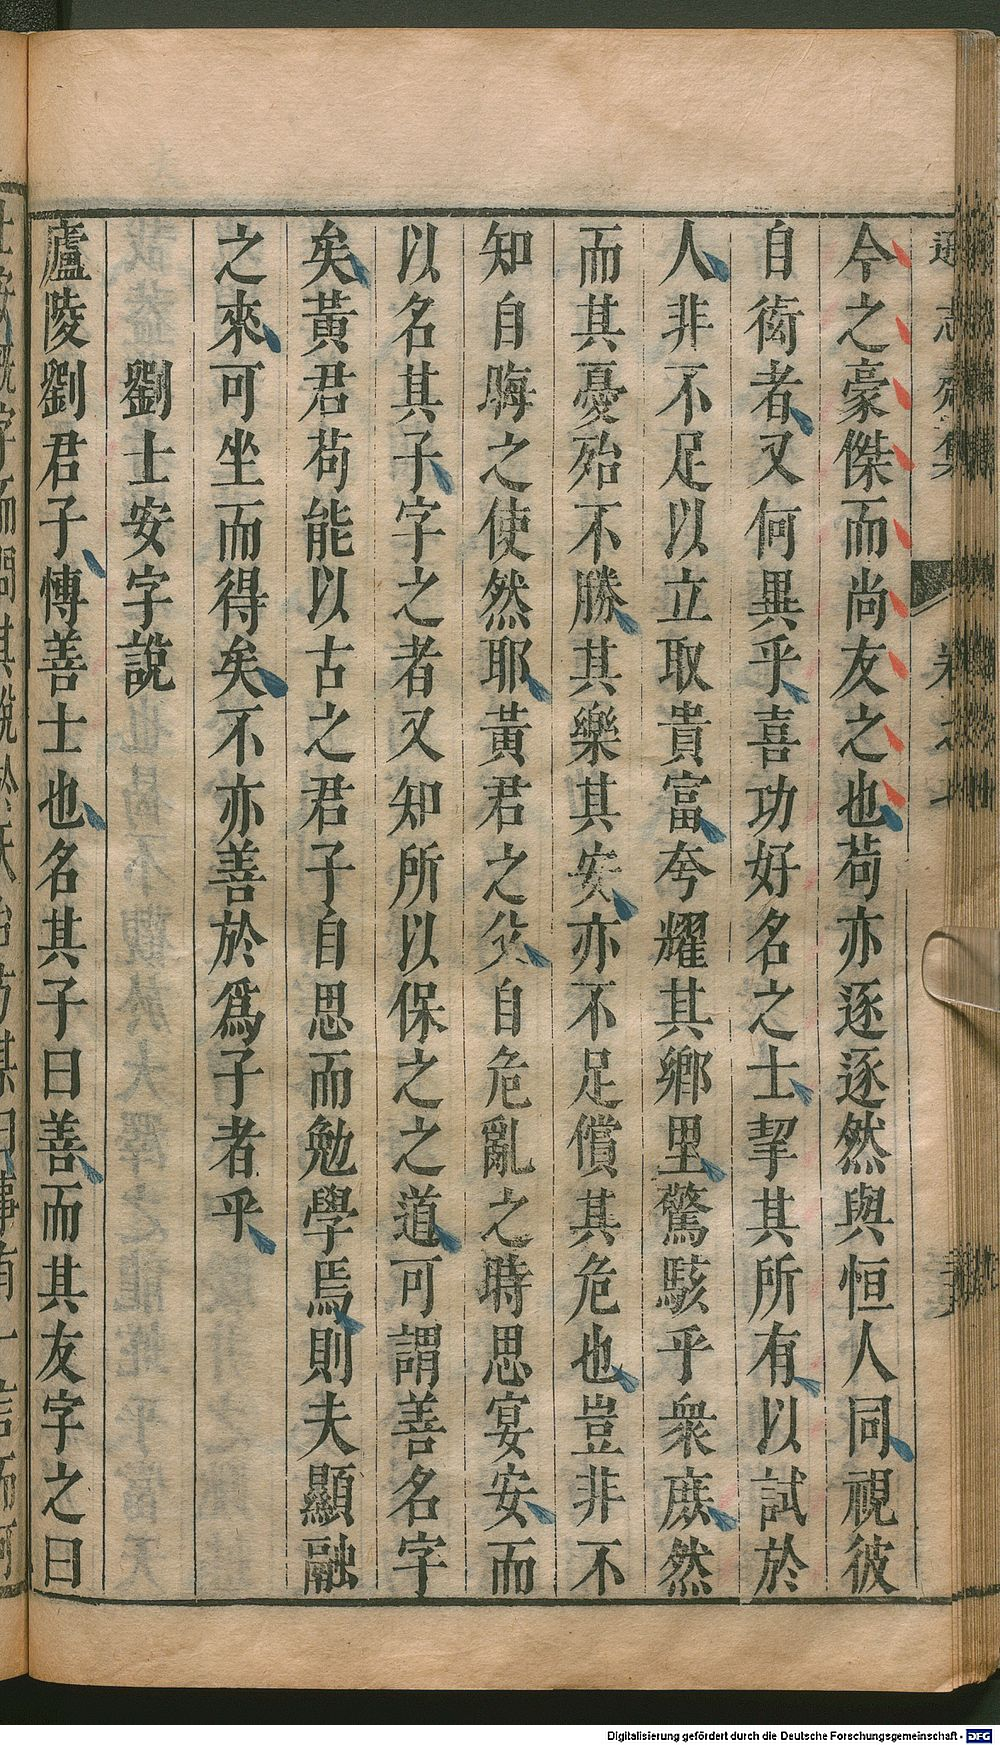 今之豪傑而尚友之也苟亦逐逐然與恒人同視彼
自衒者又何異乎喜功好名之士挈其所有以試於
人非不足以立取貴富夸耀其鄉里驚駭乎衆庶然
而其憂殆不勝其樂其安亦不足償其危也豈非不
知自晦之使然耶黃君之父自危亂之時思宴安而
以名其子字之者又知所以保之之道可謂善名字
矣黃君苟能以古之君子自思而勉學焉則夫顯融
之來可坐而得矣不亦善於爲子者乎
劉士安字說
廬陵劉君子慱善士也名其子曰善而其友字之曰
Digitalisierung gefördert durch die Deutsche Forschungsgemeinschaft - DFG